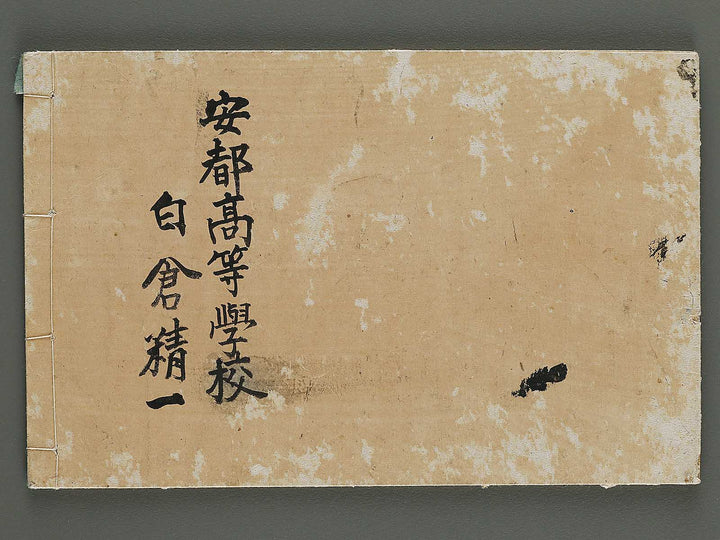 安都高等學校
白倉精一